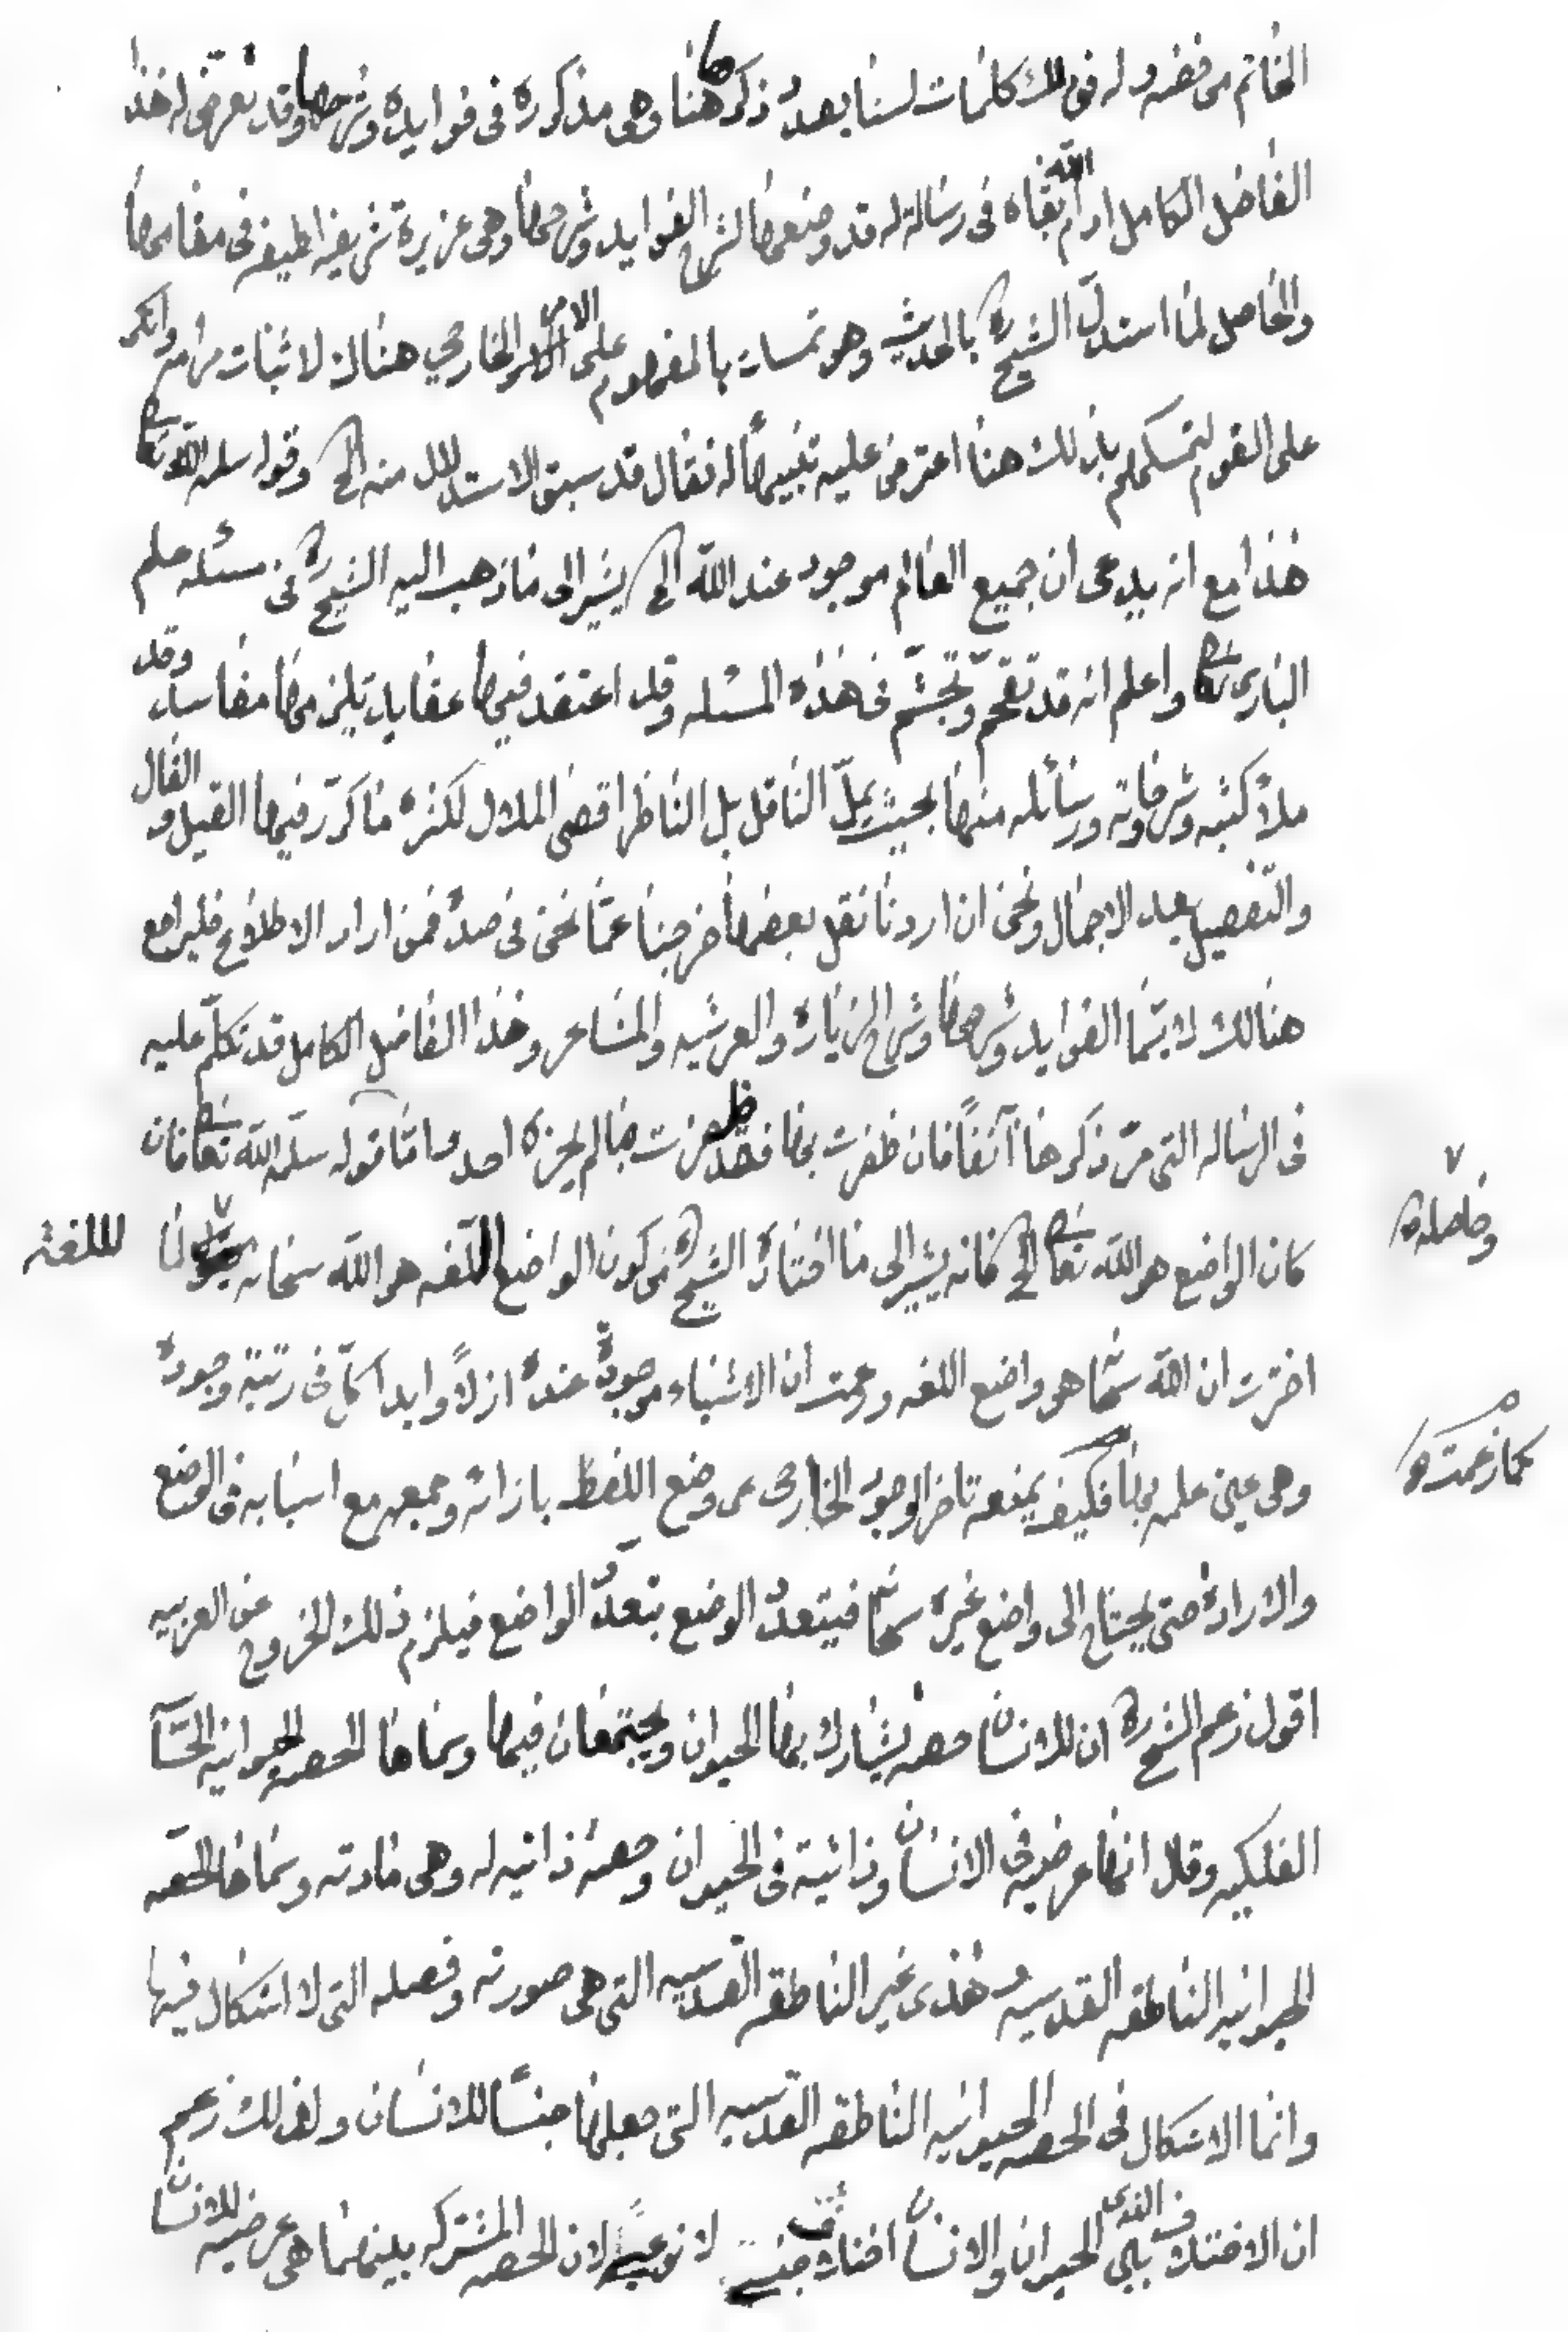 الخاتم من فضه وله في تلك كلمات لسنا بصدد ذكرها هنا وهي مذكورة في فوايده وشرحها وقد تعرض لهذا
الفاضل الكامل ادام الله بقاه في رسالة له قد وضعها لشرح الفوايد وشرحها وهي عزيزة شريفة لطيفة في مقامها
والحاصل لما استدل الشيخ ره بالحديث وهو تمسك بالمفهوم على الامر الخارجي هناك لاثبات مرامه وانكر
على القوم لتمسكهم بذلك هنا اعترض عليه تنبيهاً له فقال قد سبق الاستدلال منه الخ وقوله سلمه الله تعالى
هذا مع انه يدعى ان جميع العالم موجود عند الله الخ يشير الى ما ذهب اليه الشيخ ره في مسئله علم
الباري تعالى واعلم انه قد تقحم وتجشّم في هذه المسئله وقد اعتقد فيها عقايد يلزمها مفاسد وقد
ملأ كتبه وشروحاته ورسائله منها بحيث يملّ الناقل بل الناظر اقصى الملال لكثرة ما كرّر فيها القيل والقال
والتفصيل بعد الاجمال ونحن ان اردنا نقل بعضها خرجنا عمّا نحن في صدده فمن اراد الاطلاع فليراجع
هنالك لا سيّما الفوايد وشرحها وشرح الزيارة والعرشيه والمشاعر وهذا الفاضل الكامل قد تكلّم عليه
في الرساله التي مرّ ذكرها آنفاً فان ظفرت بها فقد ظفرت بما لم يحزه احد واما قوله سلّمه الله تعالى فان
كان الواضع هو الله تعالى الخ فانه يشير الى ما اختاره الشيخ ره من كون الواضع للّغه هو الله سبحانه لما
للغة
وحاصله
اخترت ان الله سبحانه هو واضع اللغه وزعمت ان الاشياء موجودة عنده ازلاً وابدا كلّ في رتبة وجوده
كما زعمت
وهي عين علمه بها فكيف يمنعه تاخر الوجود الخارجي عن وضع اللفظ بازائه وجمعه مع اسبابه في الوضع
والارادة حتى يحتاج الى واضع غيره سبحانه فيتعدد الوضع بتعدّد الواضع فيلزم ذلك الخروج عن العربيه
اقول زعم الشيخ ره ان للانسان حصة يشارك بها الحيوان ويجتمعان فيها وسماها الحصه الحيوانيه الحسّاسة
الفلكيه وقال انها عرضيه في الانسان وذاتية في الحيوان وحصة ذاتيه له وهي مادته وسماها الحصّه
الحيوانيه الناطقه القدسيه وهذه غير الناطقه القدسيه التي هي صورته وفصله التي لا اشكال فيها
وانما الاشكال في الحصه الحيوانيه الناطقه القدسيه التي جعلها جنساً للانسان ولذلك زعم
ان الاختلاف الذي بين الحيوان والانسان اختلاف جنسي لا نوعي لان الحصه المشتركه بينهما هي عرضيه للانسان